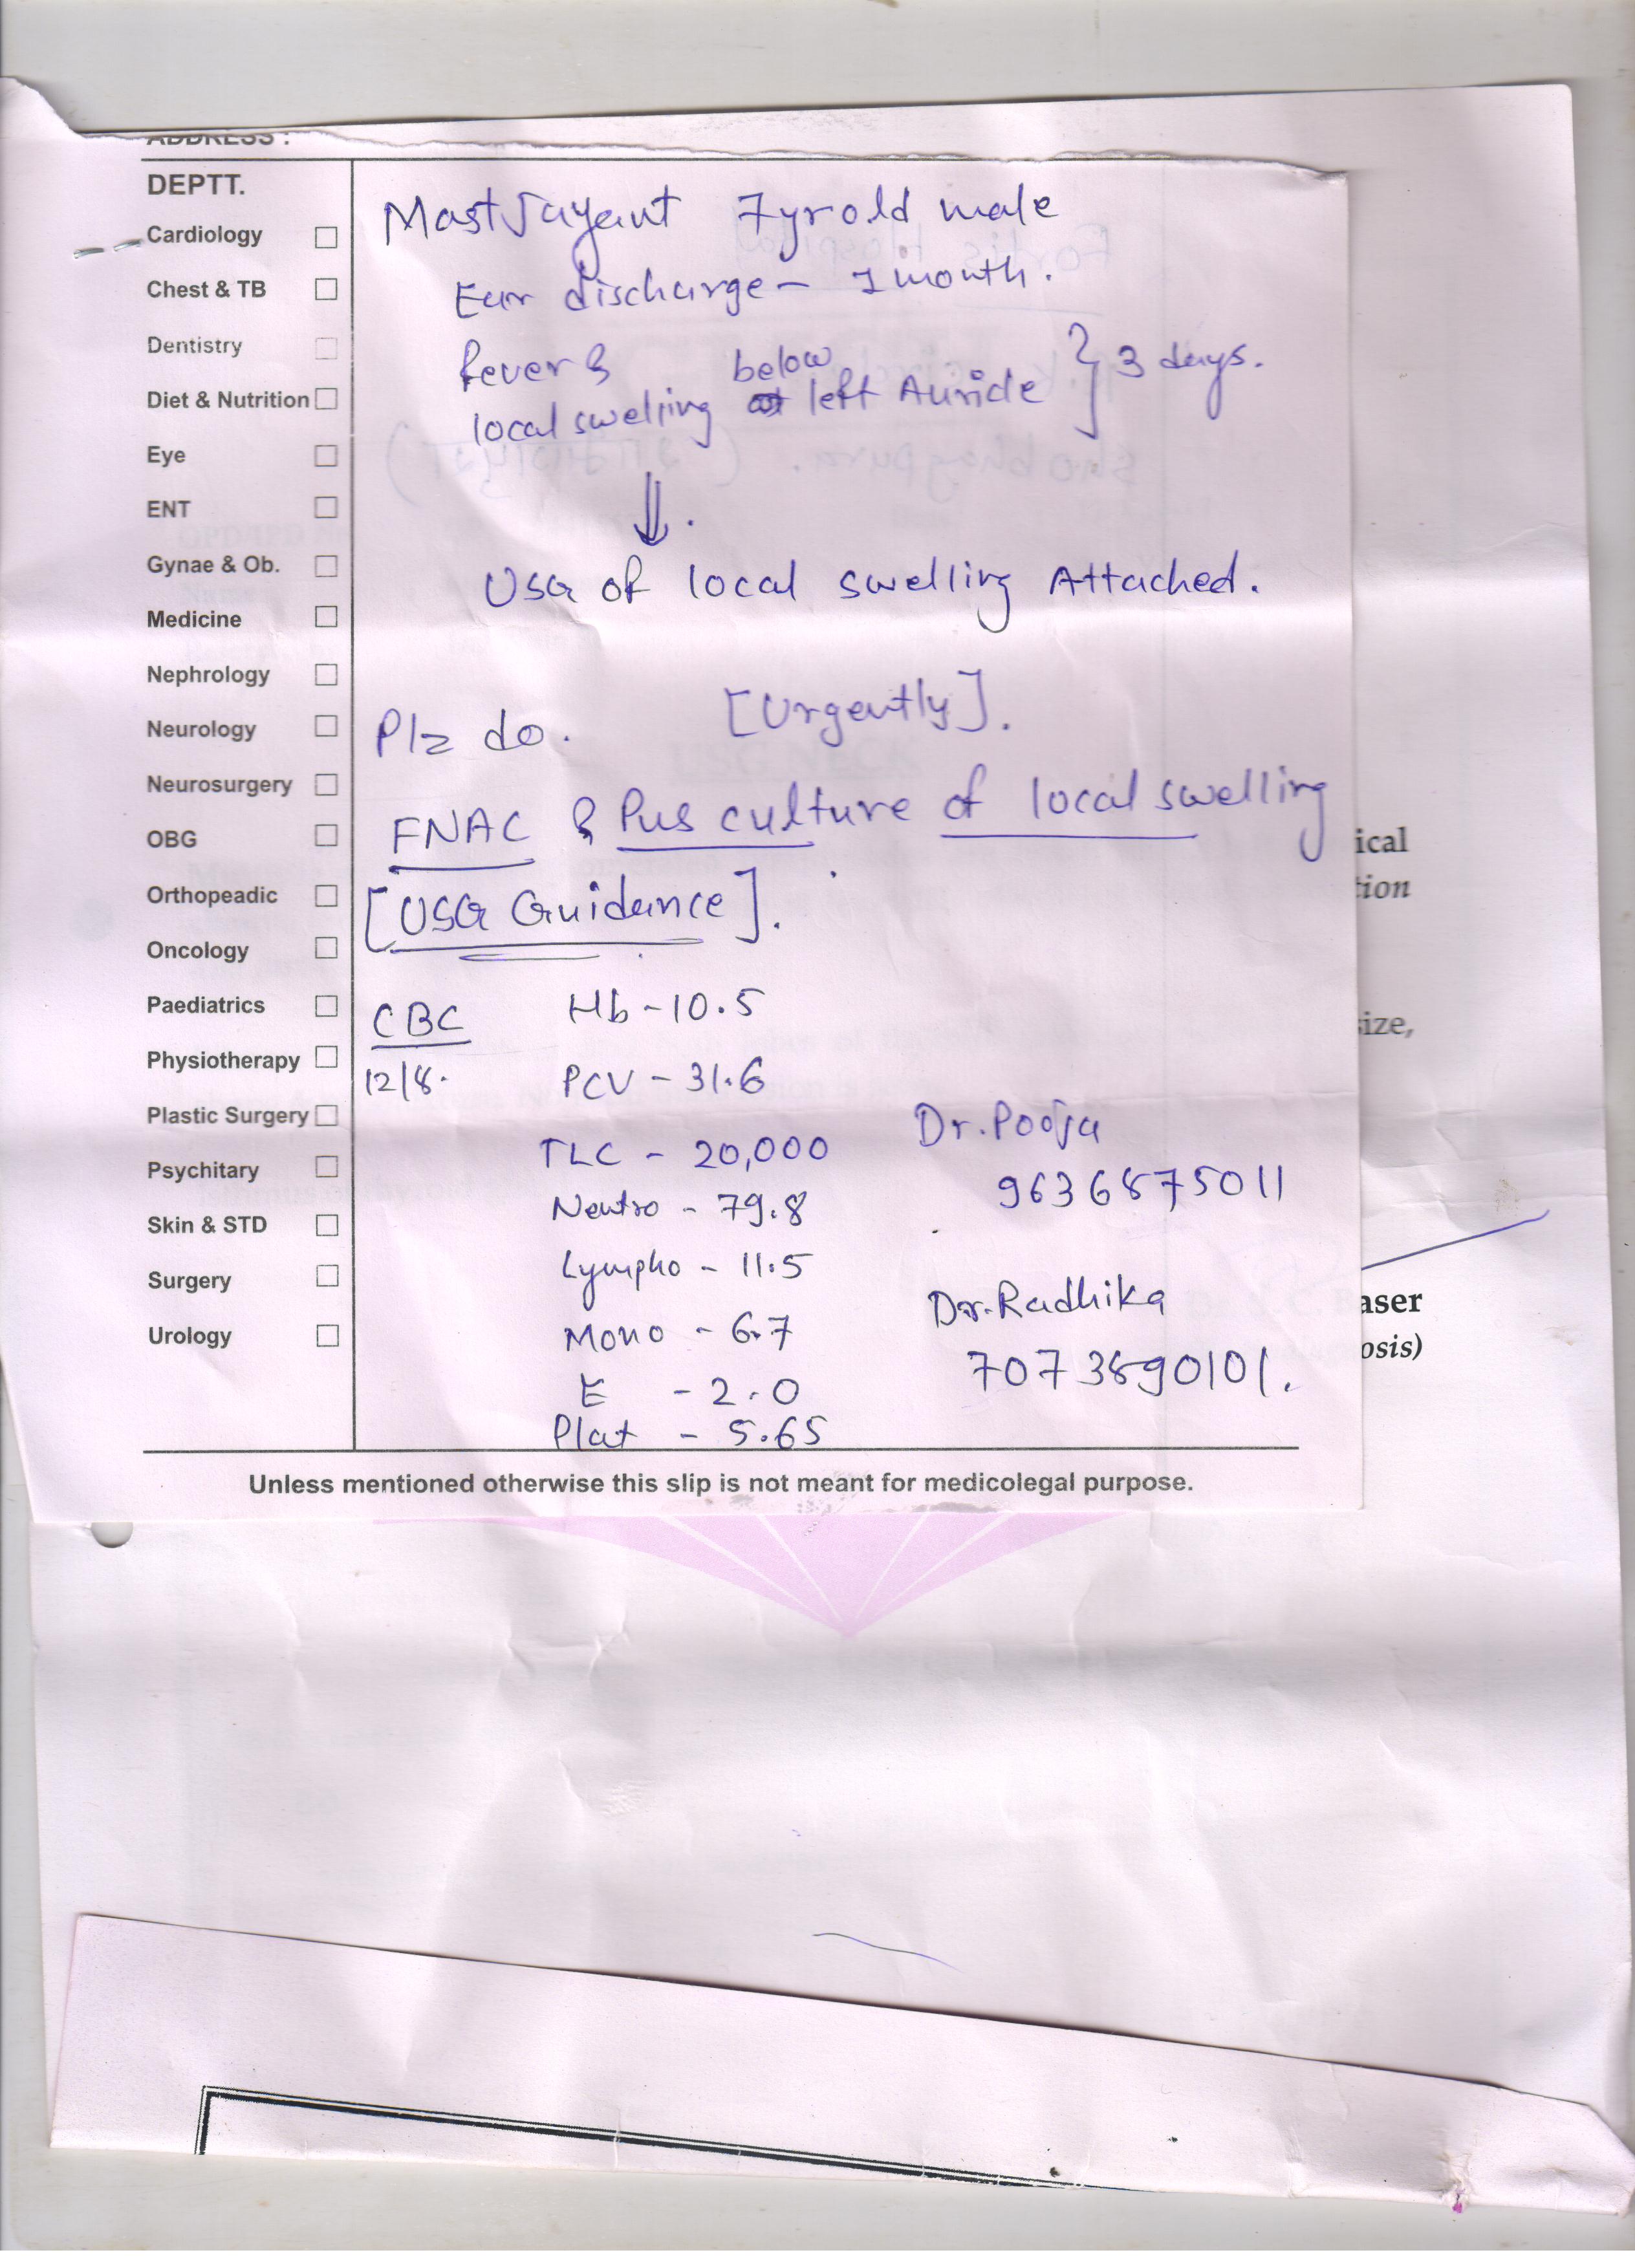 ADDRESS :
DEPTT.
Cardiology
Chest & TB
Dentistry
Diet & Nutrition
Eye
ENT
Gynae & Ob.
Medicine
Nephrology
Neurology
Neurosurgery
OBG
Orthopeadic
Oncology
Paediatrics
Physiotherapy
Plastic Surgery
Psychitary
Skin & STD
Surgery
Urology
Mast Jayant 7yr old male
Ear discharge - 1 month.
fever &
local swelling below left Auricle } 3 days.
⇓.
USG of local swelling Attached.
Plz do. [Urgently].
FNAC & Pus culture of local swelling
[USG Guidance].
CBC
12/8.
Hb - 10.5
PCV - 31.6
TLC - 20,000
Neutro - 79.8
Lympho - 11.5
Mono - 6.7
E - 2.0
Plat - 5.65
Dr. Pooja
9636875011
Dr. Radhika
7073890101.
Unless mentioned otherwise this slip is not meant for medicolegal purpose.
ical
tion
size,
aser
osis)
USG NECK